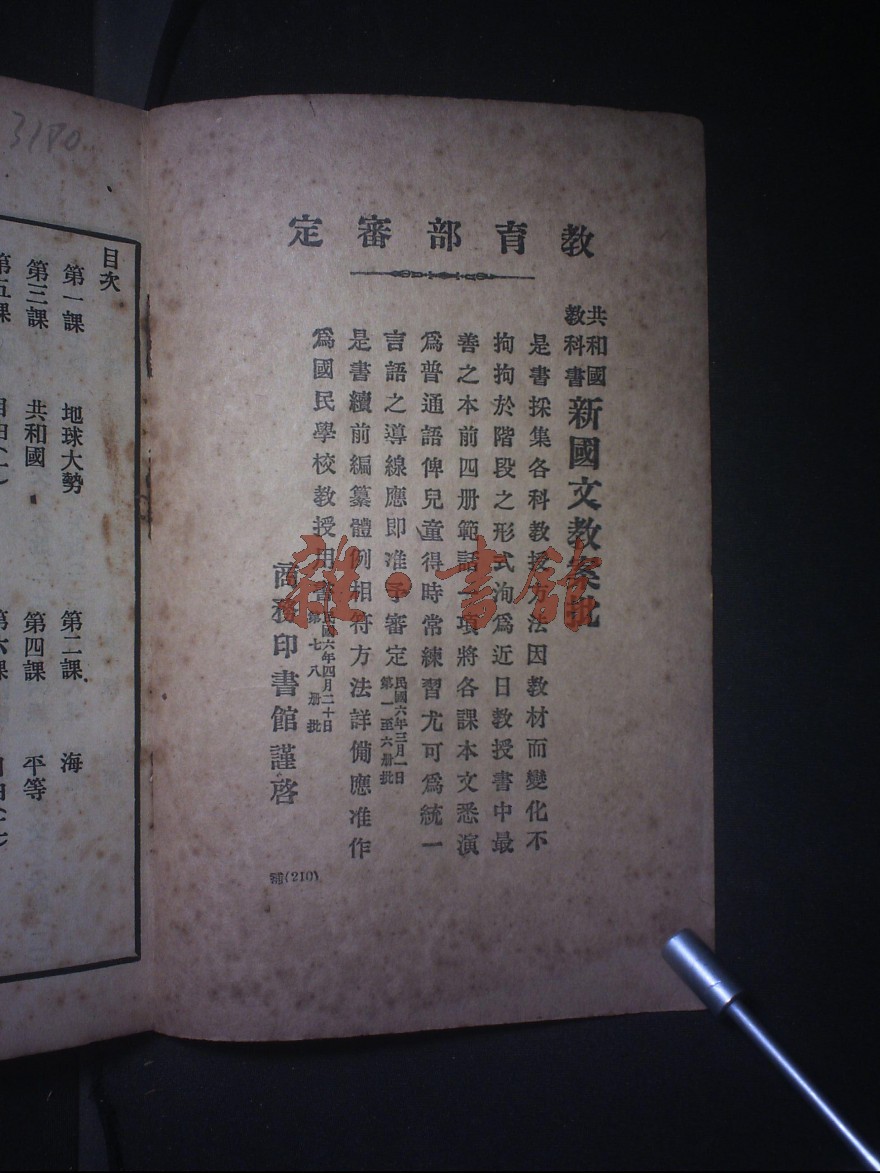 教育部審定
共和國
教科書
新國文教案批
是書採集各科教授方法因教材而變化不
拘拘於階段之形式洵爲近日教授書中最
善之本前四册範話一項將各課本文悉演
爲普通語俾兒童得時常練習尤可爲統一
言語之導線應即准予審定
民國六年三月一日
第一至六册批
是書續前編纂體例相符方法詳備應准作
爲國民學校教授用書
民國六年四月二十日
第七八册批
商務印書館謹啓
(210)
雜·書館
3180
目次
第一課 地球大勢 第二課 海
第三課 共和國 第四課 平等
第五課 第六課